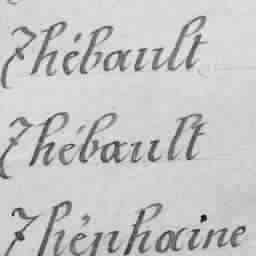 Thébault
Thébault
Théphaine